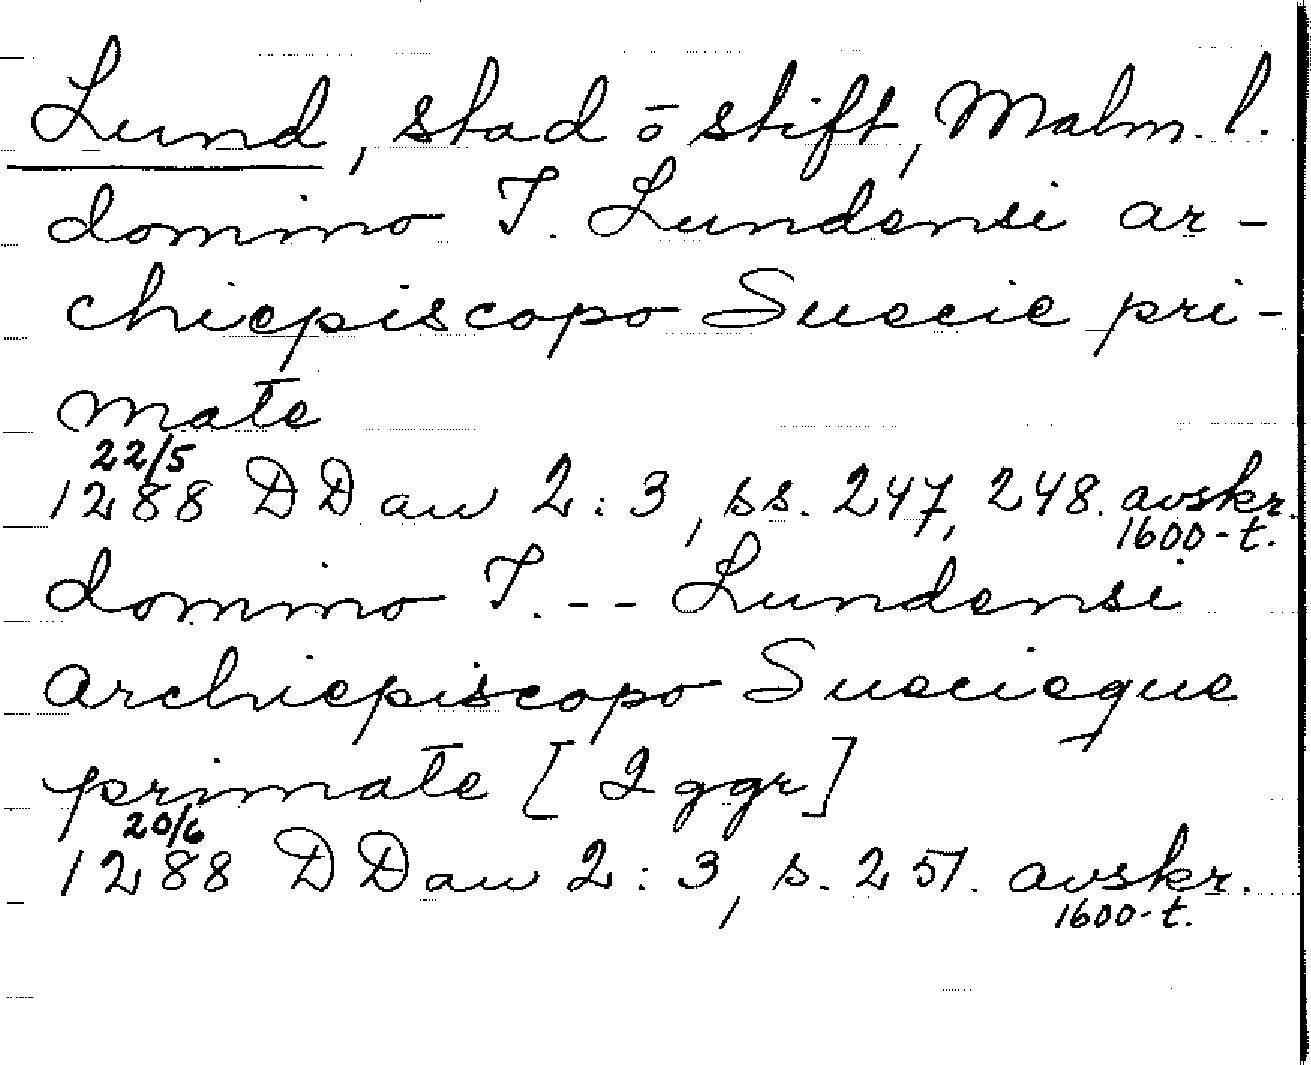 Lund, stad o stift, Malm. l.
domino T. Lundensi ar-
chiepiscopo Suecie pri-
mate
22/5
1288 DDan 2:3, ss. 247, 248. avskr.
1600-t.
domino T. -- Lundensi
archiepiscopo Suecieque
primate [2 ggr]
20/6
1288 DDan 2:3, s. 251. avskr.
1600-t.